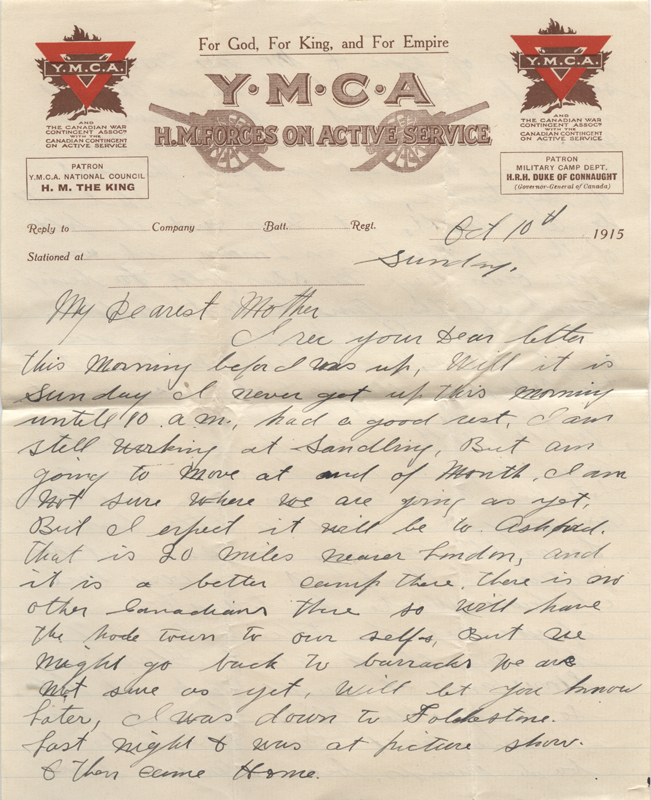 For God, For King, and For Empire
Y.M.C.A.
AND
THE CANADIAN WAR
CONTINGENT ASSOCN
WITH THE
CANADIAN CONTINGENT
ON ACTIVE SERVICE
PATRON
Y.M.C.A. NATIONAL COUNCIL
H. M. THE KING
Y·M·C·A
H.M. FORCES ON ACTIVE SERVICE
Y.M.C.A.
AND
THE CANADIAN WAR
CONTINGENT ASSOCN
WITH THE
CANADIAN CONTINGENT
ON ACTIVE SERVICE
PATRON
MILITARY CAMP DEPT.
H.R.H. DUKE OF CONNAUGHT
(Governor-General of Canada)
Reply to Company Batt. Regt. Oct 10th 1915
Stationed at Sunday.
My Dearest Mother
I rec your Dear letter
this Morning before I was up, Well it is
Sunday I never got up this morning
untill 10 a.m., had a good rest, I am
still working at Sandling, But am
going to Move at end of Month, I am
Not sure where we are going as yet,
But I expect it will be to Ashford.
that is 20 miles nearer London, and
it is a better camp there, there is no
other Canadians there so will have
the hode town to our selfs, But we
Might go back to barracks We are
Not sure as yet, Will let you know
later, I was down to Folkestone.
last night & was at picture show.
& then came Home.